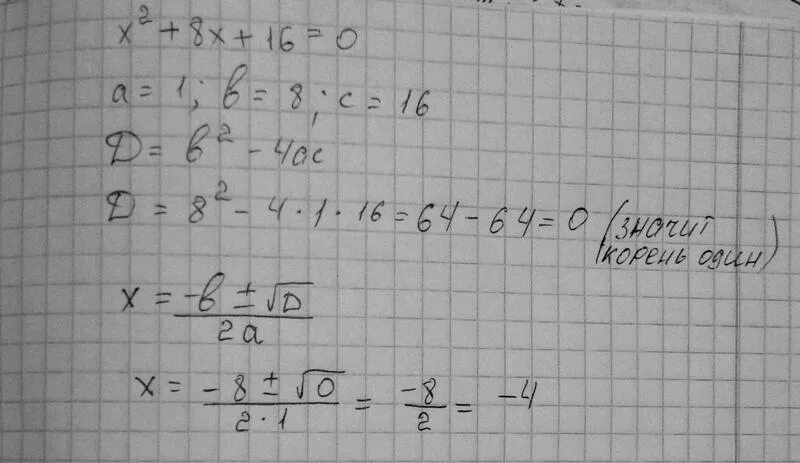 x² + 8x + 16 = 0
a = 1; b = 8; c = 16
Д = b² - 4ac
Д = 8² - 4 · 1 · 16 = 64 - 64 = 0 (значит
корень один)
x = -b ± √D / 2a
x = -8 ± √0 / 2 · 1 = -8 / 2 = -4